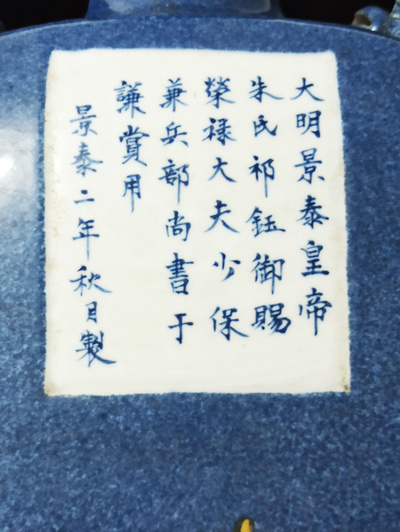 大明景泰皇帝
朱氏祁鈺御賜
榮祿大夫少保
兼兵部尚書于
謙賞用
景泰二年秋月製